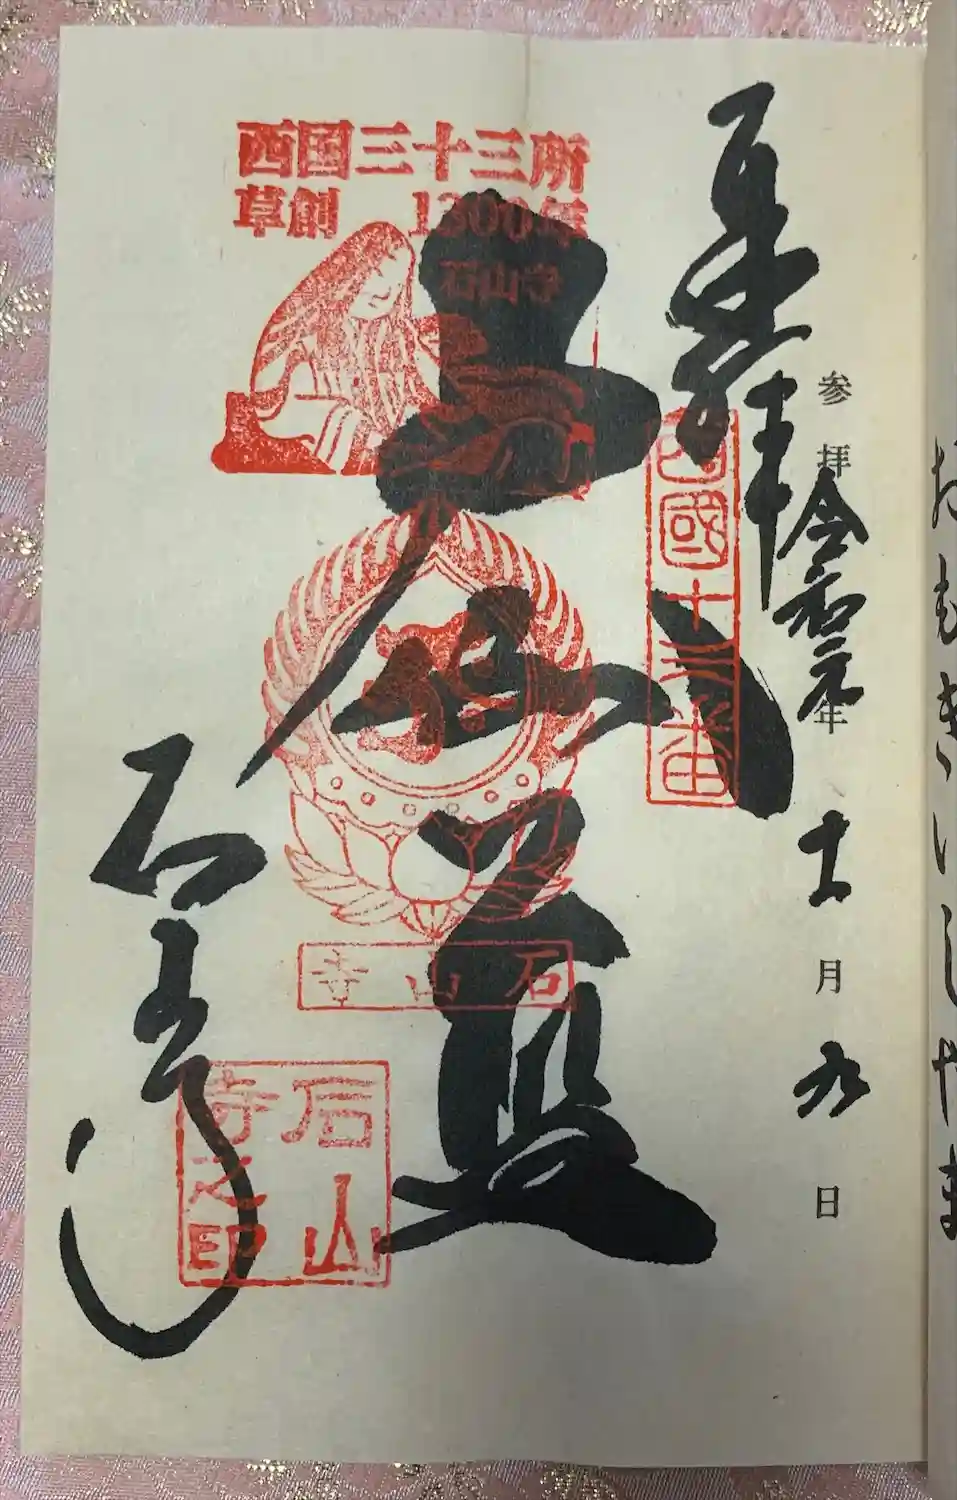 奉拝
参拝令和元年十一月九日
西國十三番
西国三十三所
草創 1300年
石山寺
大伽藍
石山寺
石山寺之印
石山寺
おもきいしやま